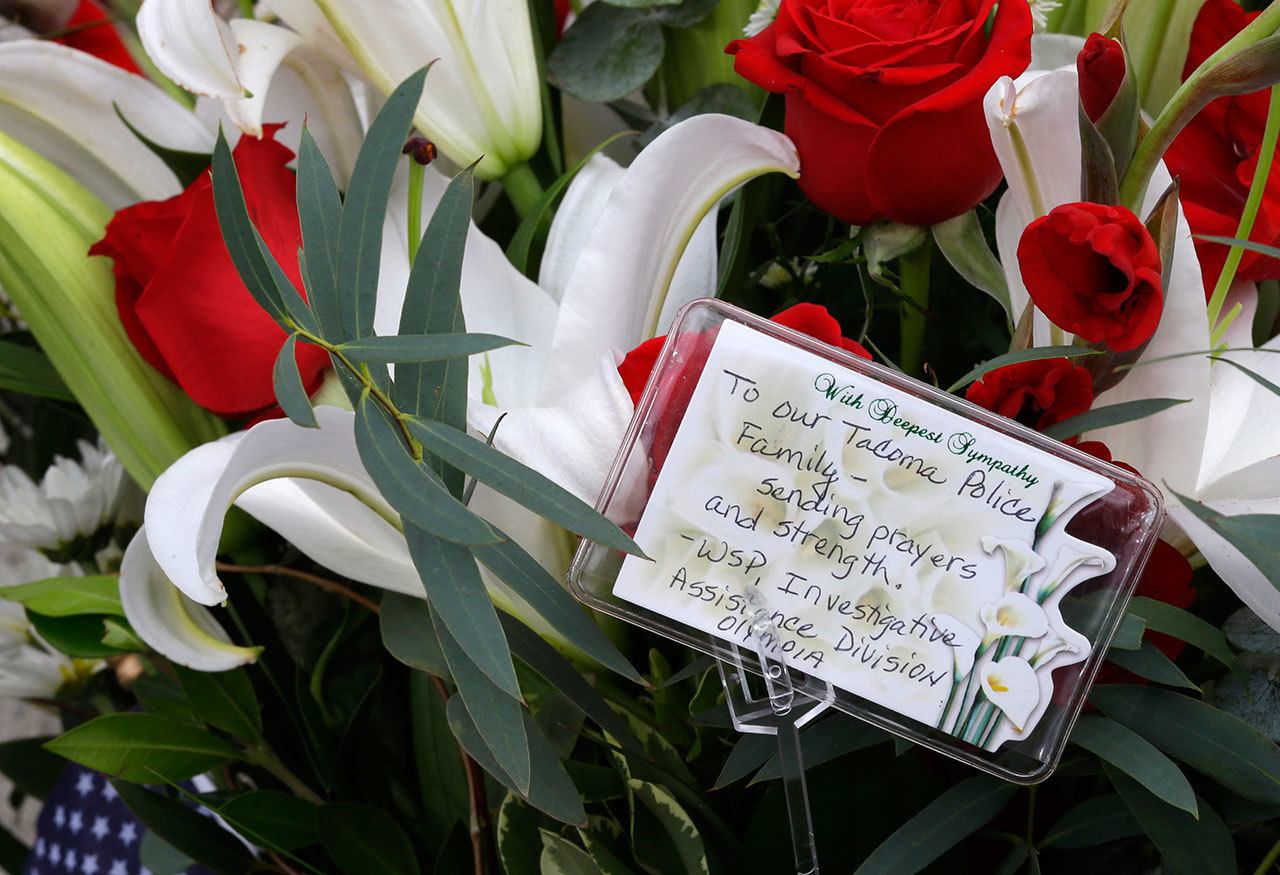 With Deepest Sympathy
To our Tacoma Police
Family-
sending prayers
and strength.
-WSP, Investigative
Assisstance Division
OlYMPIA